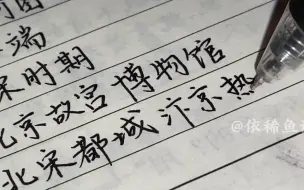 端
宋时期
北京故宫博物馆
北宋都城汴京热
@依稀鱼